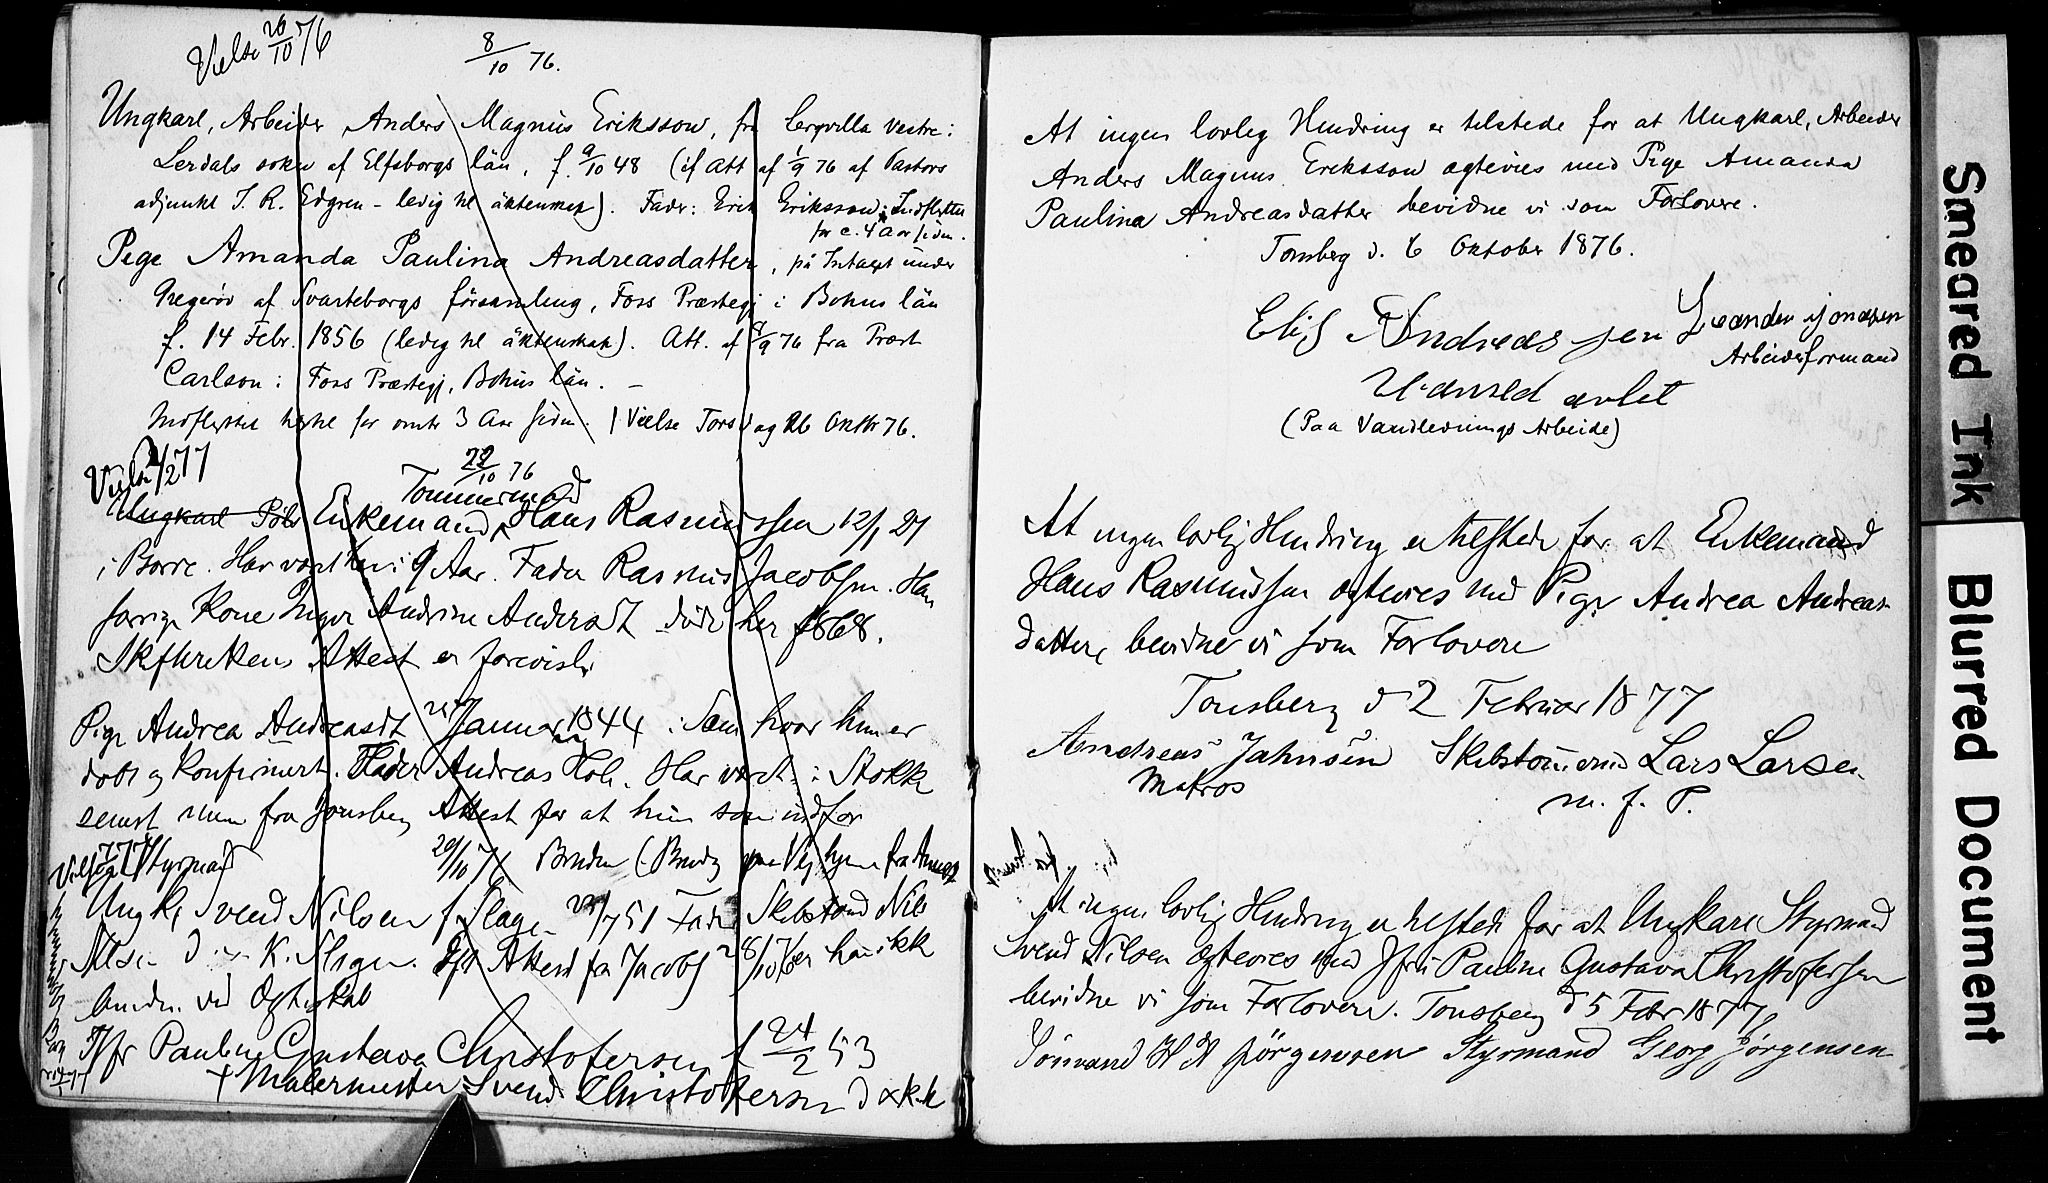 Vielse 26/10 76
8/10 76.
Ungkarl, Arbeider Anders Magnus Eriksson, fra Bergvilla vestre i
Lerdals sokn af Elfsborgs län, f. 9/10 48 (if Att af 1/9 76 af Pastors
adjunkt J. R. Edgren - ledig til äktenskap). Fader: Erik Eriksson. Indflyttet
for c. 4 Aar siden.
Pige Amanda Paulina Andreasdatter, på Intaget under
Gregeröd af Svarteborgs församling, Foss Præstegj i Bohus län
f. 14 Febr. 1856 (ledig til äktenskap). Att. af 8/9 76 fra Prost
Carlson i Foss Præstegj, Bohus län. -
Indflyttet hertil for omtr 3 Aar siden. / Vielse Torsdag 26 Oktbr 76.
Vielse 2/2 77
22/10 76
Tømmermand
Ungkarl Enkemand Hans Rasmussen 12/1 27
i Borre. Har vært her i 9 Aar. Fader Rasmus Jacobsen. Han
forrige Kone Inger Andrine Andersdt døde her 1868.
Skifterettens Attest er forevist.
Pige Andrea Andreasdt Januar 1844 i Sem hvor hun er
døbt og konfirmert. Fader Andreas Holm. Har vært i Stokke
senest men fra Tønsberg Attest for at hun som indfør
Styrmand
29/10 76 Bruden
Ungk. Svend Nilsen f Slagen 7 51 Fader Skibstømd Nils
Nilsen K. Slagen. Attest fra Jacobs 28/10 76 er han ikke
bunden ved Ægteskab
Jfr Pauline Gustava Christofersen f 24/2 53
+ Malermester Svend Christofersen
At ingen lovlig Hindring er tilstede for at Ungkarl, Arbeider
Anders Magnus Eriksson ægtevies med Pige Amanda
Paulina Andreasdatter bevidne vi som Forlovere.
Tønsberg d. 6 Oktober 1876.
Elis Andreassen Leander Jonassen
Arbeidsformand
(Paa Vandledningsarbeide)
At ingen lovlig Hindring er tilstede for at Enkemand
Hans Rasmussen ægtevies med Pige Andrea Andreas-
datter, bevidne vi som Forlovere
Tønsberg d 2 Februar 1877
Andreas Jahnsen Skibstømmermd Lars Larsen
Matros m. f. P.
At ingen lovlig Hindring er tilstede for at Ungkarl Styrmand
Svend Nilsen ægtevies med Jfru Pauline Gustava Christofersen
bevidne vi som Forlovere. Tønsberg d 5 Febr 1877
Sömand H H Jörgensen Styrmand Georg Jørgensen
Smeared Ink
Blurred Document